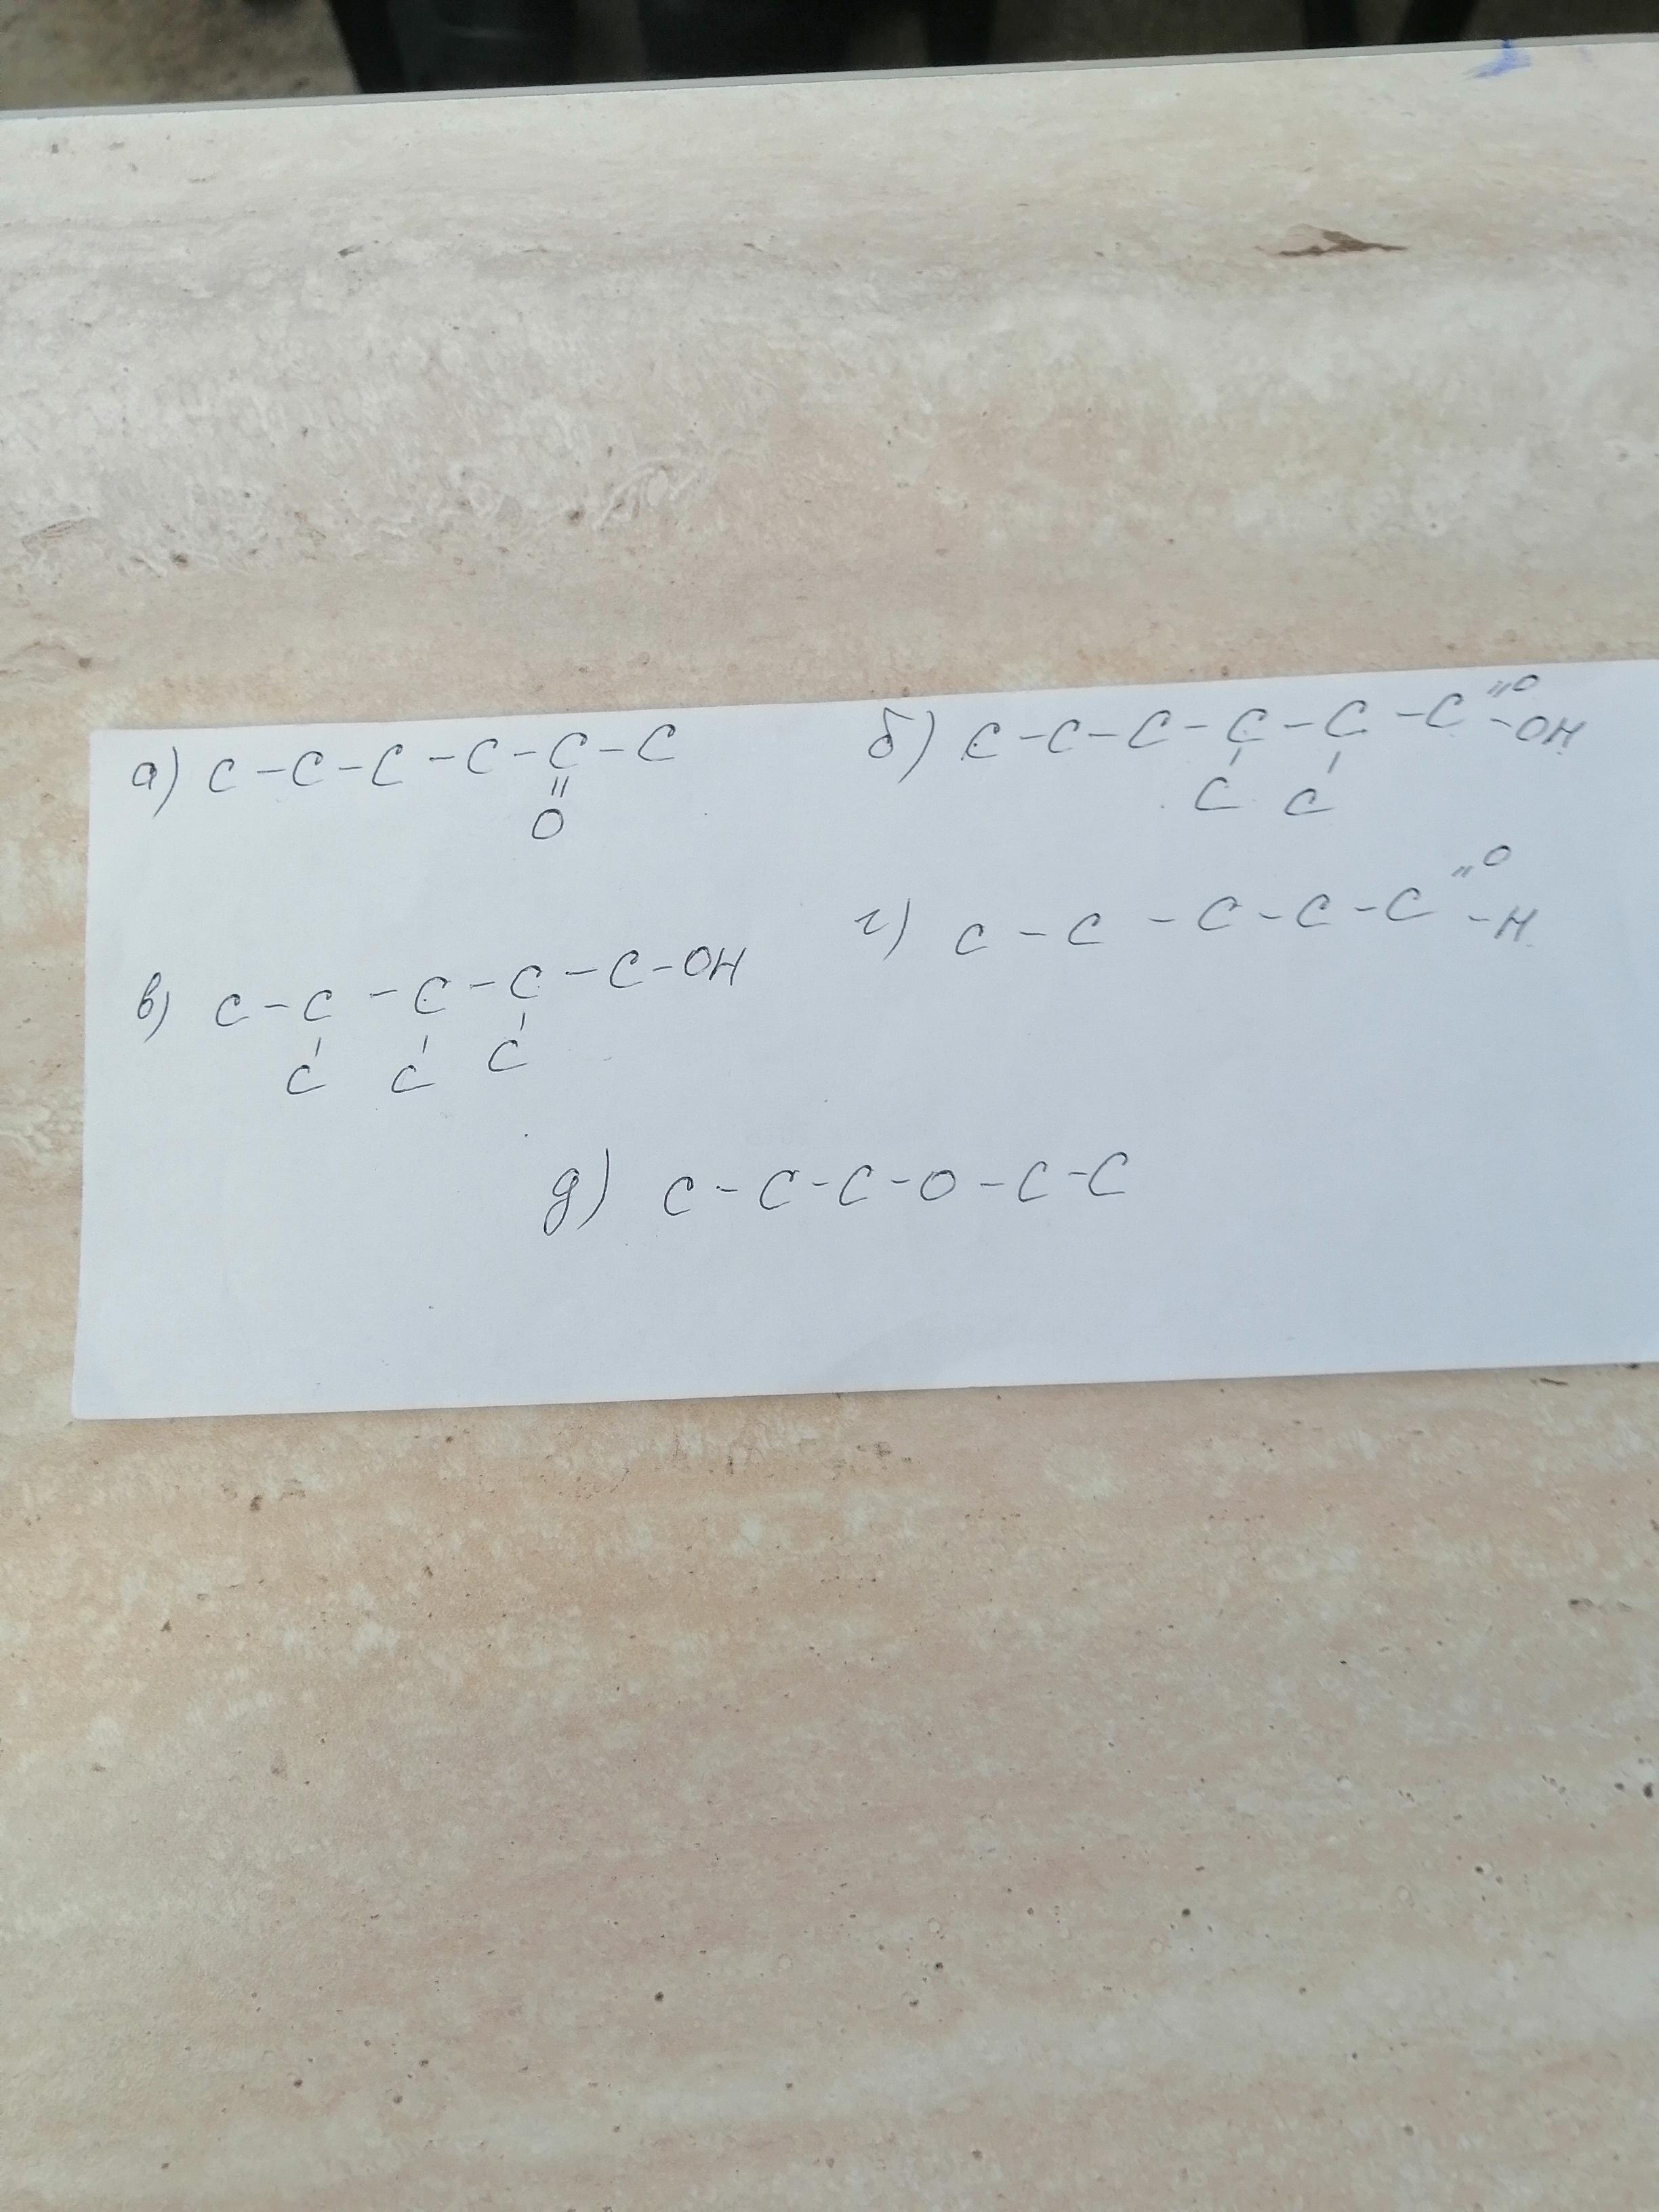 а) C-C-C-C-C-C б) C-C-C-C-C-C=O-OH
=O C C
в) C-C-C-C-C-OH г) C-C-C-C-C=O-H
C C C
д) C-C-C-O-C-C